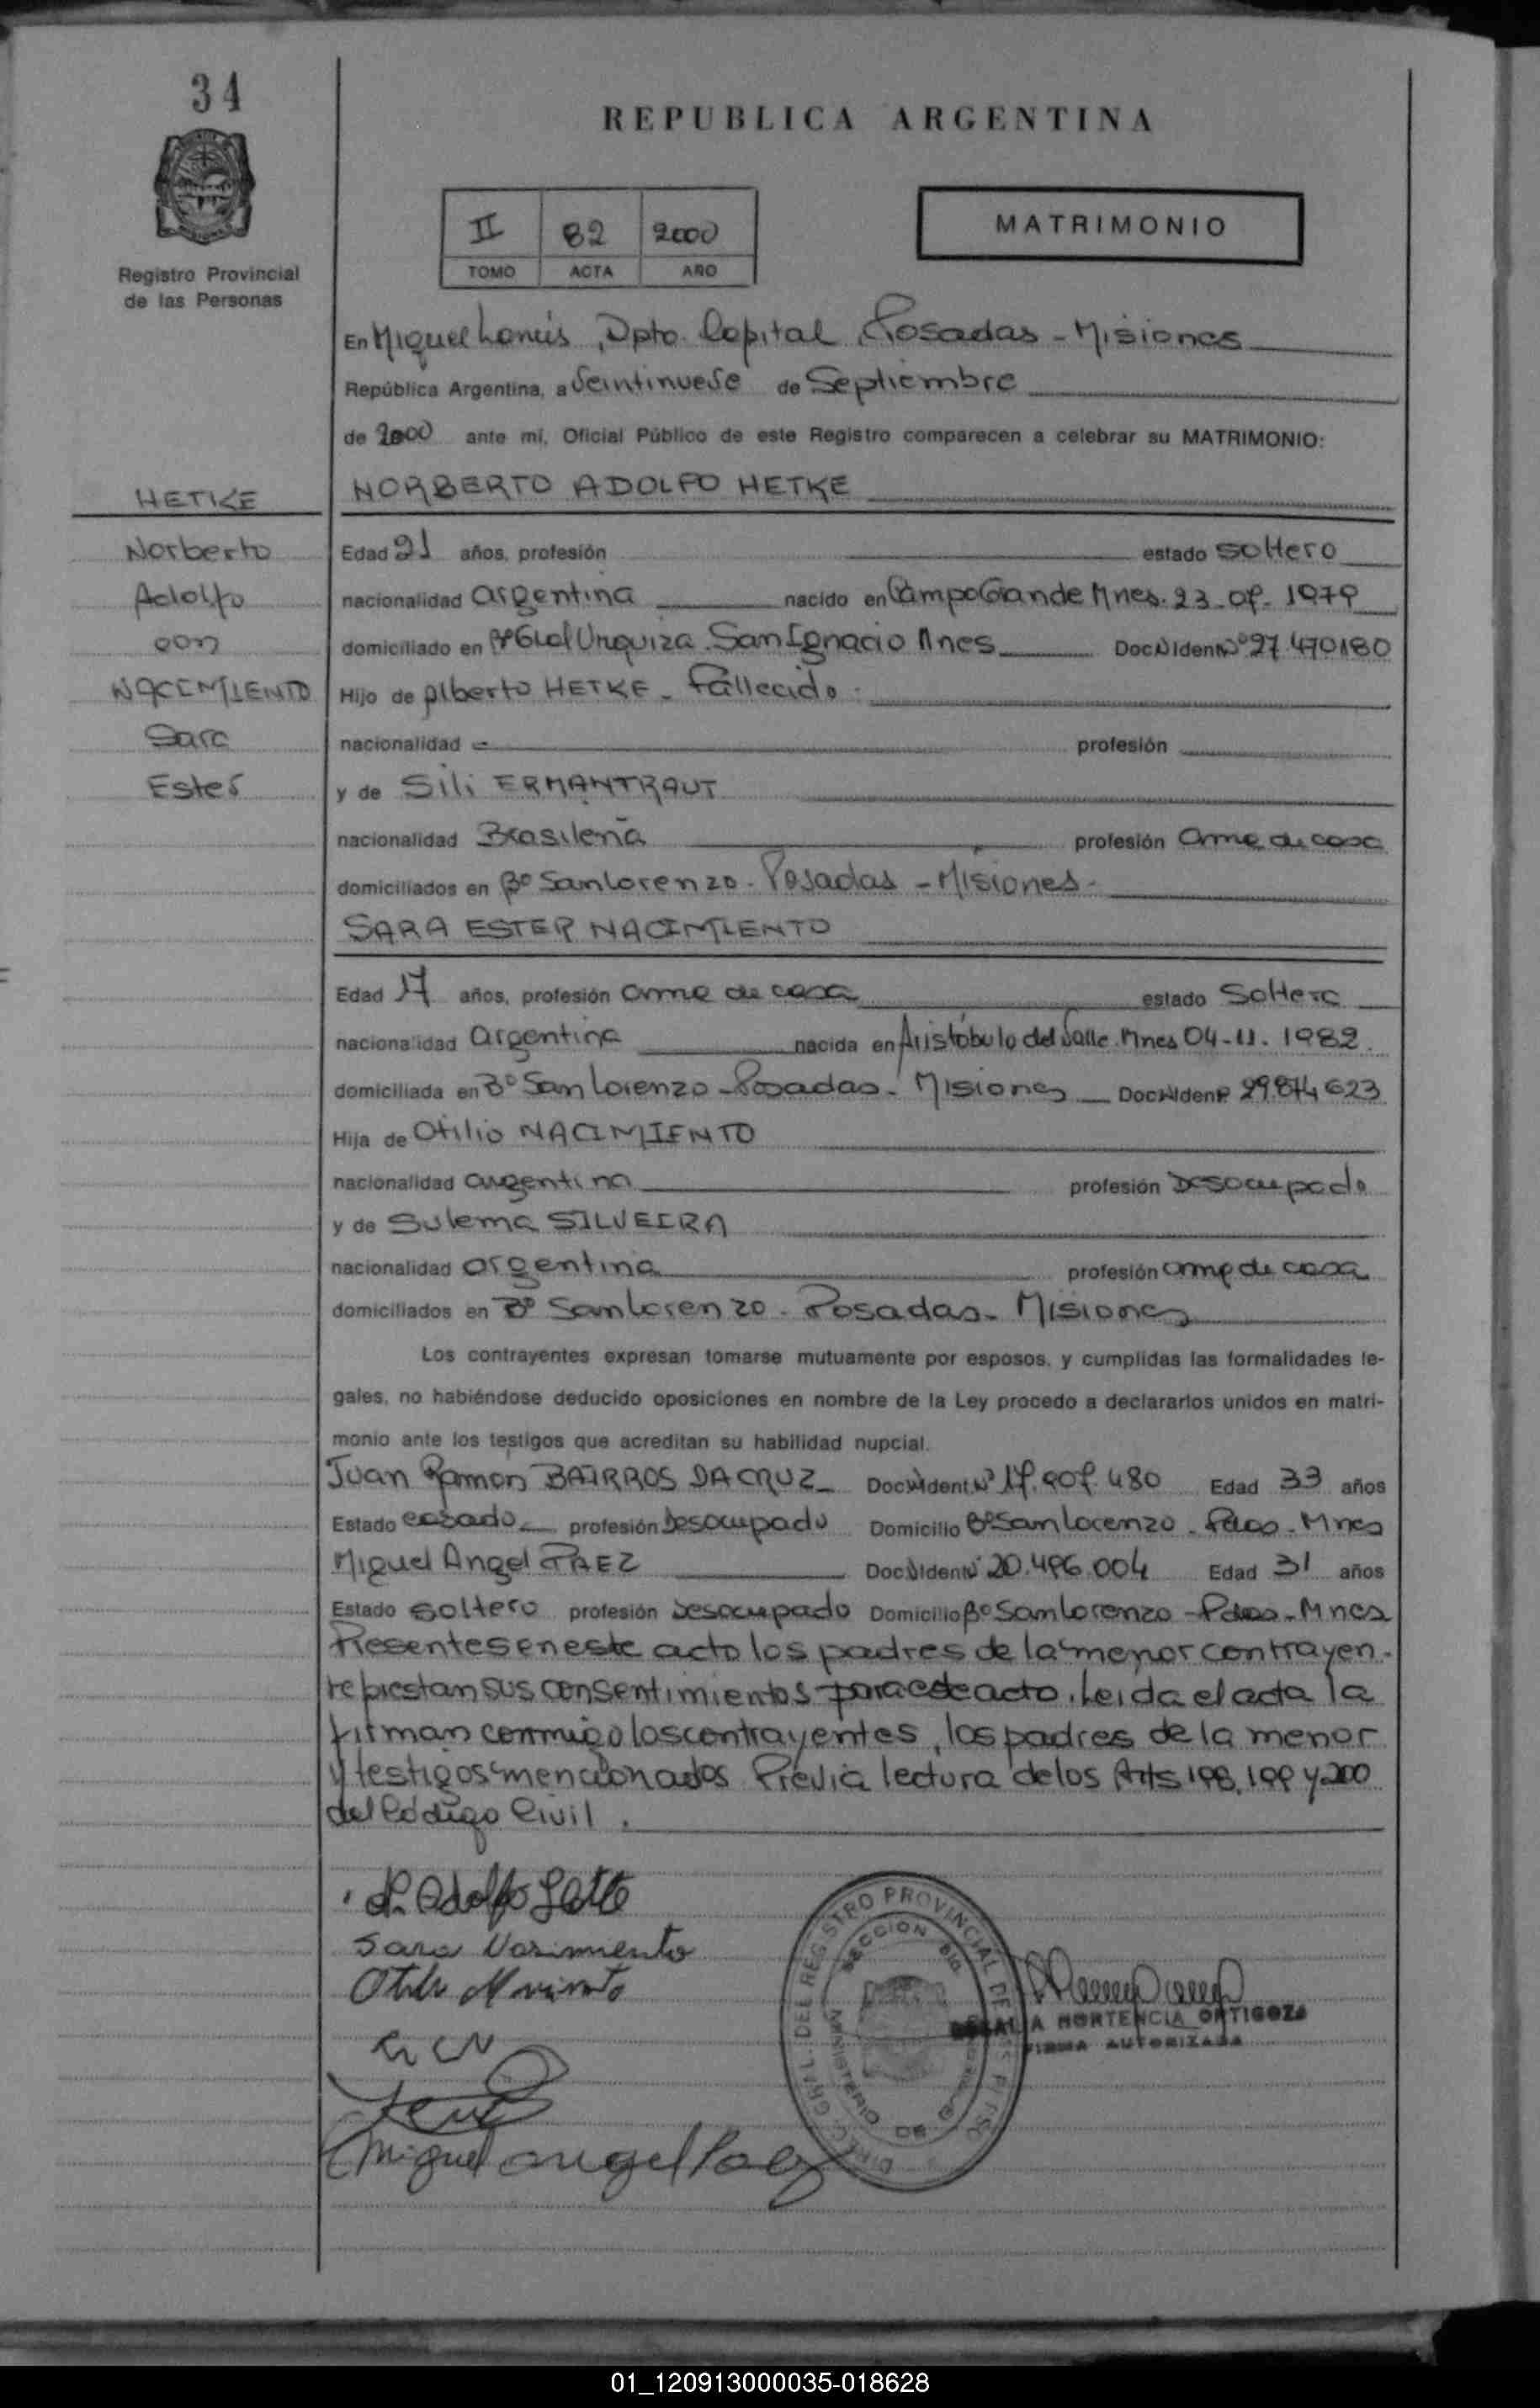 34
REPUBLICA ARGENTINA
II 82 2000
MATRIMONIO
TOMO ACTA AÑO
Registro Provincial
de las Personas
En Miguel Lanús, Dpto. Capital Posadas - Misiones
República Argentina, a Veintinueve de Septiembre
de 2000 ante mí, Oficial Público de este Registro comparecen a celebrar su MATRIMONIO:
HETKE
NORBERTO ADOLFO HETKE
Norberto
Edad 21 años, profesión estado soltero
Adolfo
nacionalidad argentina nacido en Campo Grande Mnes. 23-07-1979
con
domiciliado en Gral Urquiza San Ignacio Mnes Doc. N Ident. Nº 27.470180
NACIMIENTO
Hijo de Alberto HETKE - fallecido.
Sara
nacionalidad - profesión
Ester
y de Sili ERMANTRAUT
nacionalidad Brasileña profesión ama de casa
domiciliados en Bº San Lorenzo - Posadas - Misiones -
SARA ESTER NACIMIENTO
Edad 17 años, profesión ama de casa estado Soltera
nacionalidad argentina nacida en Aristóbulo del Valle Mnes 04-11-1982
domiciliada en Bº San Lorenzo - Posadas - Misiones Doc. N Ident. Nº 29.874623
Hija de Otilio NACIMIENTO
nacionalidad argentina profesión Desocupado
y de Sulema SILVEIRA
nacionalidad argentina profesión ama de casa
domiciliados en Bº San Lorenzo - Posadas - Misiones
Los contrayentes expresan tomarse mutuamente por esposos, y cumplidas las formalidades le-
gales, no habiéndose deducido oposiciones en nombre de la Ley procedo a declararlos unidos en matri-
monio ante los testigos que acreditan su habilidad nupcial.
Juan Ramon BAIRROS DA CRUZ - Doc. N Ident. Nº 17.907.480 Edad 33 años
Estado casado - profesión Desocupado Domicilio Bº San Lorenzo - Pdas - Mnes
Miguel Angel PAEZ Doc. N Ident. Nº 20.496.004 Edad 31 años
Estado soltero profesión Desocupado Domicilio Bº San Lorenzo - Pdas - Mnes
Presentes en este acto los padres de la menor contrayen-
te prestan sus consentimientos para este acto. Leida el acta la
firman conmigo los contrayentes, los padres de la menor
y testigos mencionados Previa lectura de los Arts 198, 199 y 200
del Código Civil.
Adolfo
Sara Nasimiento
Miguel angel Paez
DIREC. GRAL. DEL REGISTRO PROVINCIAL DE
SECCION
HORTENCIA ORTIGOZA
FIRMA AUTORIZADA
01_120913000035-018628